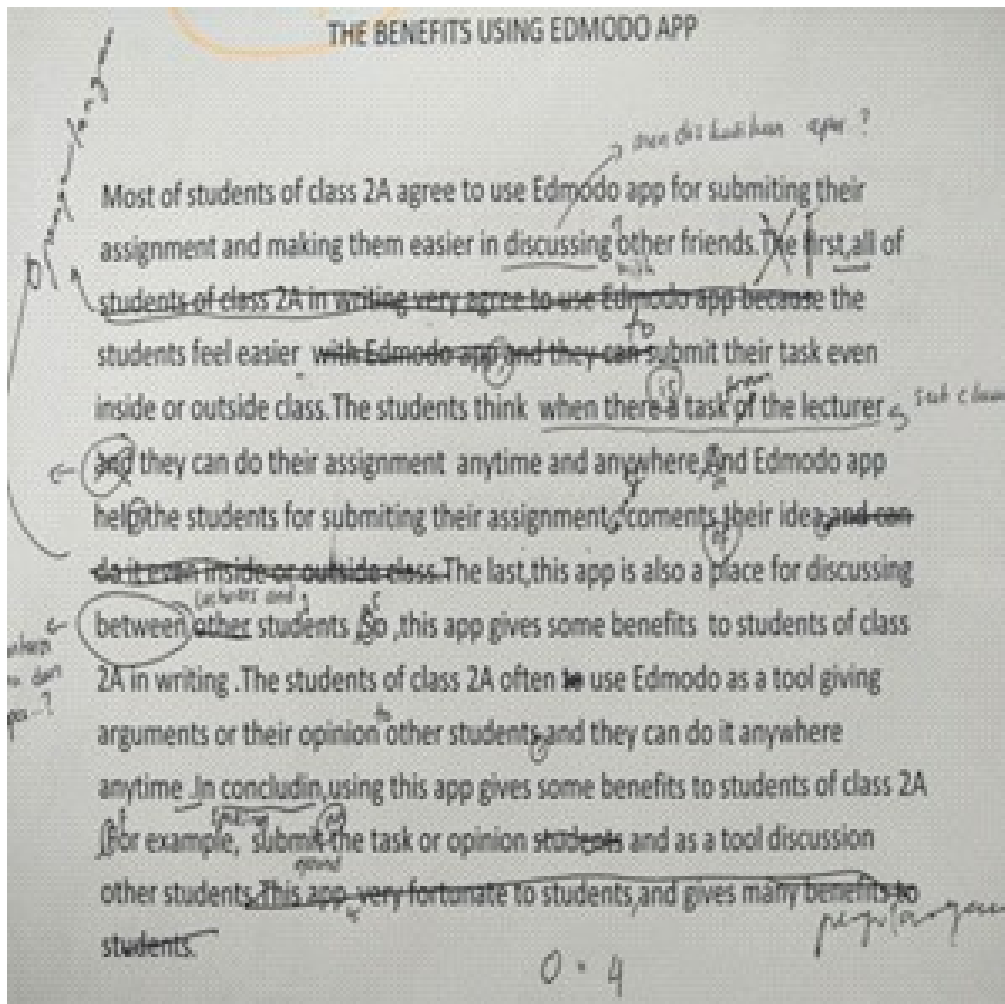 THE BENEFITS USING EDMODO APP
mendiskusikan apa ?
Most of students of class 2A agree to use Edmodo app for submiting their
assignment and making them easier in discussing other friends. The first,all of
with
students of class 2A in writing very agree to use Edmodo app because the
to
students feel easier with Edmodo app and they can submit their task even
is from
inside or outside class. The students think when there a task of the lecturer
and they can do their assignment anytime and anywhere, And Edmodo app
help the students for submiting their assignment, coments their idea, and can
of
do it even inside or outside class. The last,this app is also a place for discussing
lecturers and
between other students .So ,this app gives some benefits to students of class
2A in writing .The students of class 2A often to use Edmodo as a tool giving
to
arguments or their opinion other students, and they can do it anywhere
anytime .In concludin,using this app gives some benefits to students of class 2A
.For example, submit the task or opinion students and as a tool discussion
other students.This app very fortunate to students,and gives many benefits to
is
students.
0 . 4